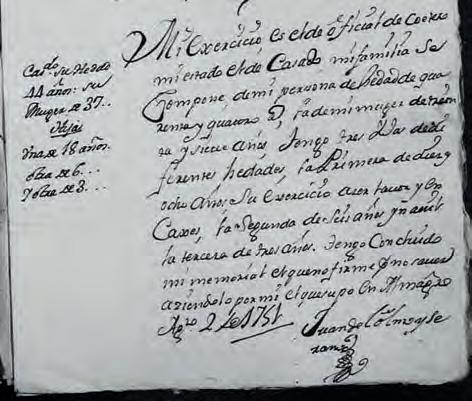 Cas.do de Hedad
44 años: su
Muger de 37..
Hijas
Vna de 18 años.
otra de 6...
Y otra de 3...
Mi Exercicio, es el de oficial de
mi estado el de Casado mi familia se
Compone, de mi persona de hedad de qua
renta y quatro a.s, la de mi muger de trein
ta y siete años Tengo tres Hijas de di
ferentes hedades, la Primera de diez y
ocho Años, su Exercicio azer tacor y En
Caxes, la segunda de seis años y
la tercera de tres años. Tengo Concluido
mi memorial el que no firme por no saver
aziendolo por mi el que supo En Almagro
Ag.to 2 de 1751
Juan de